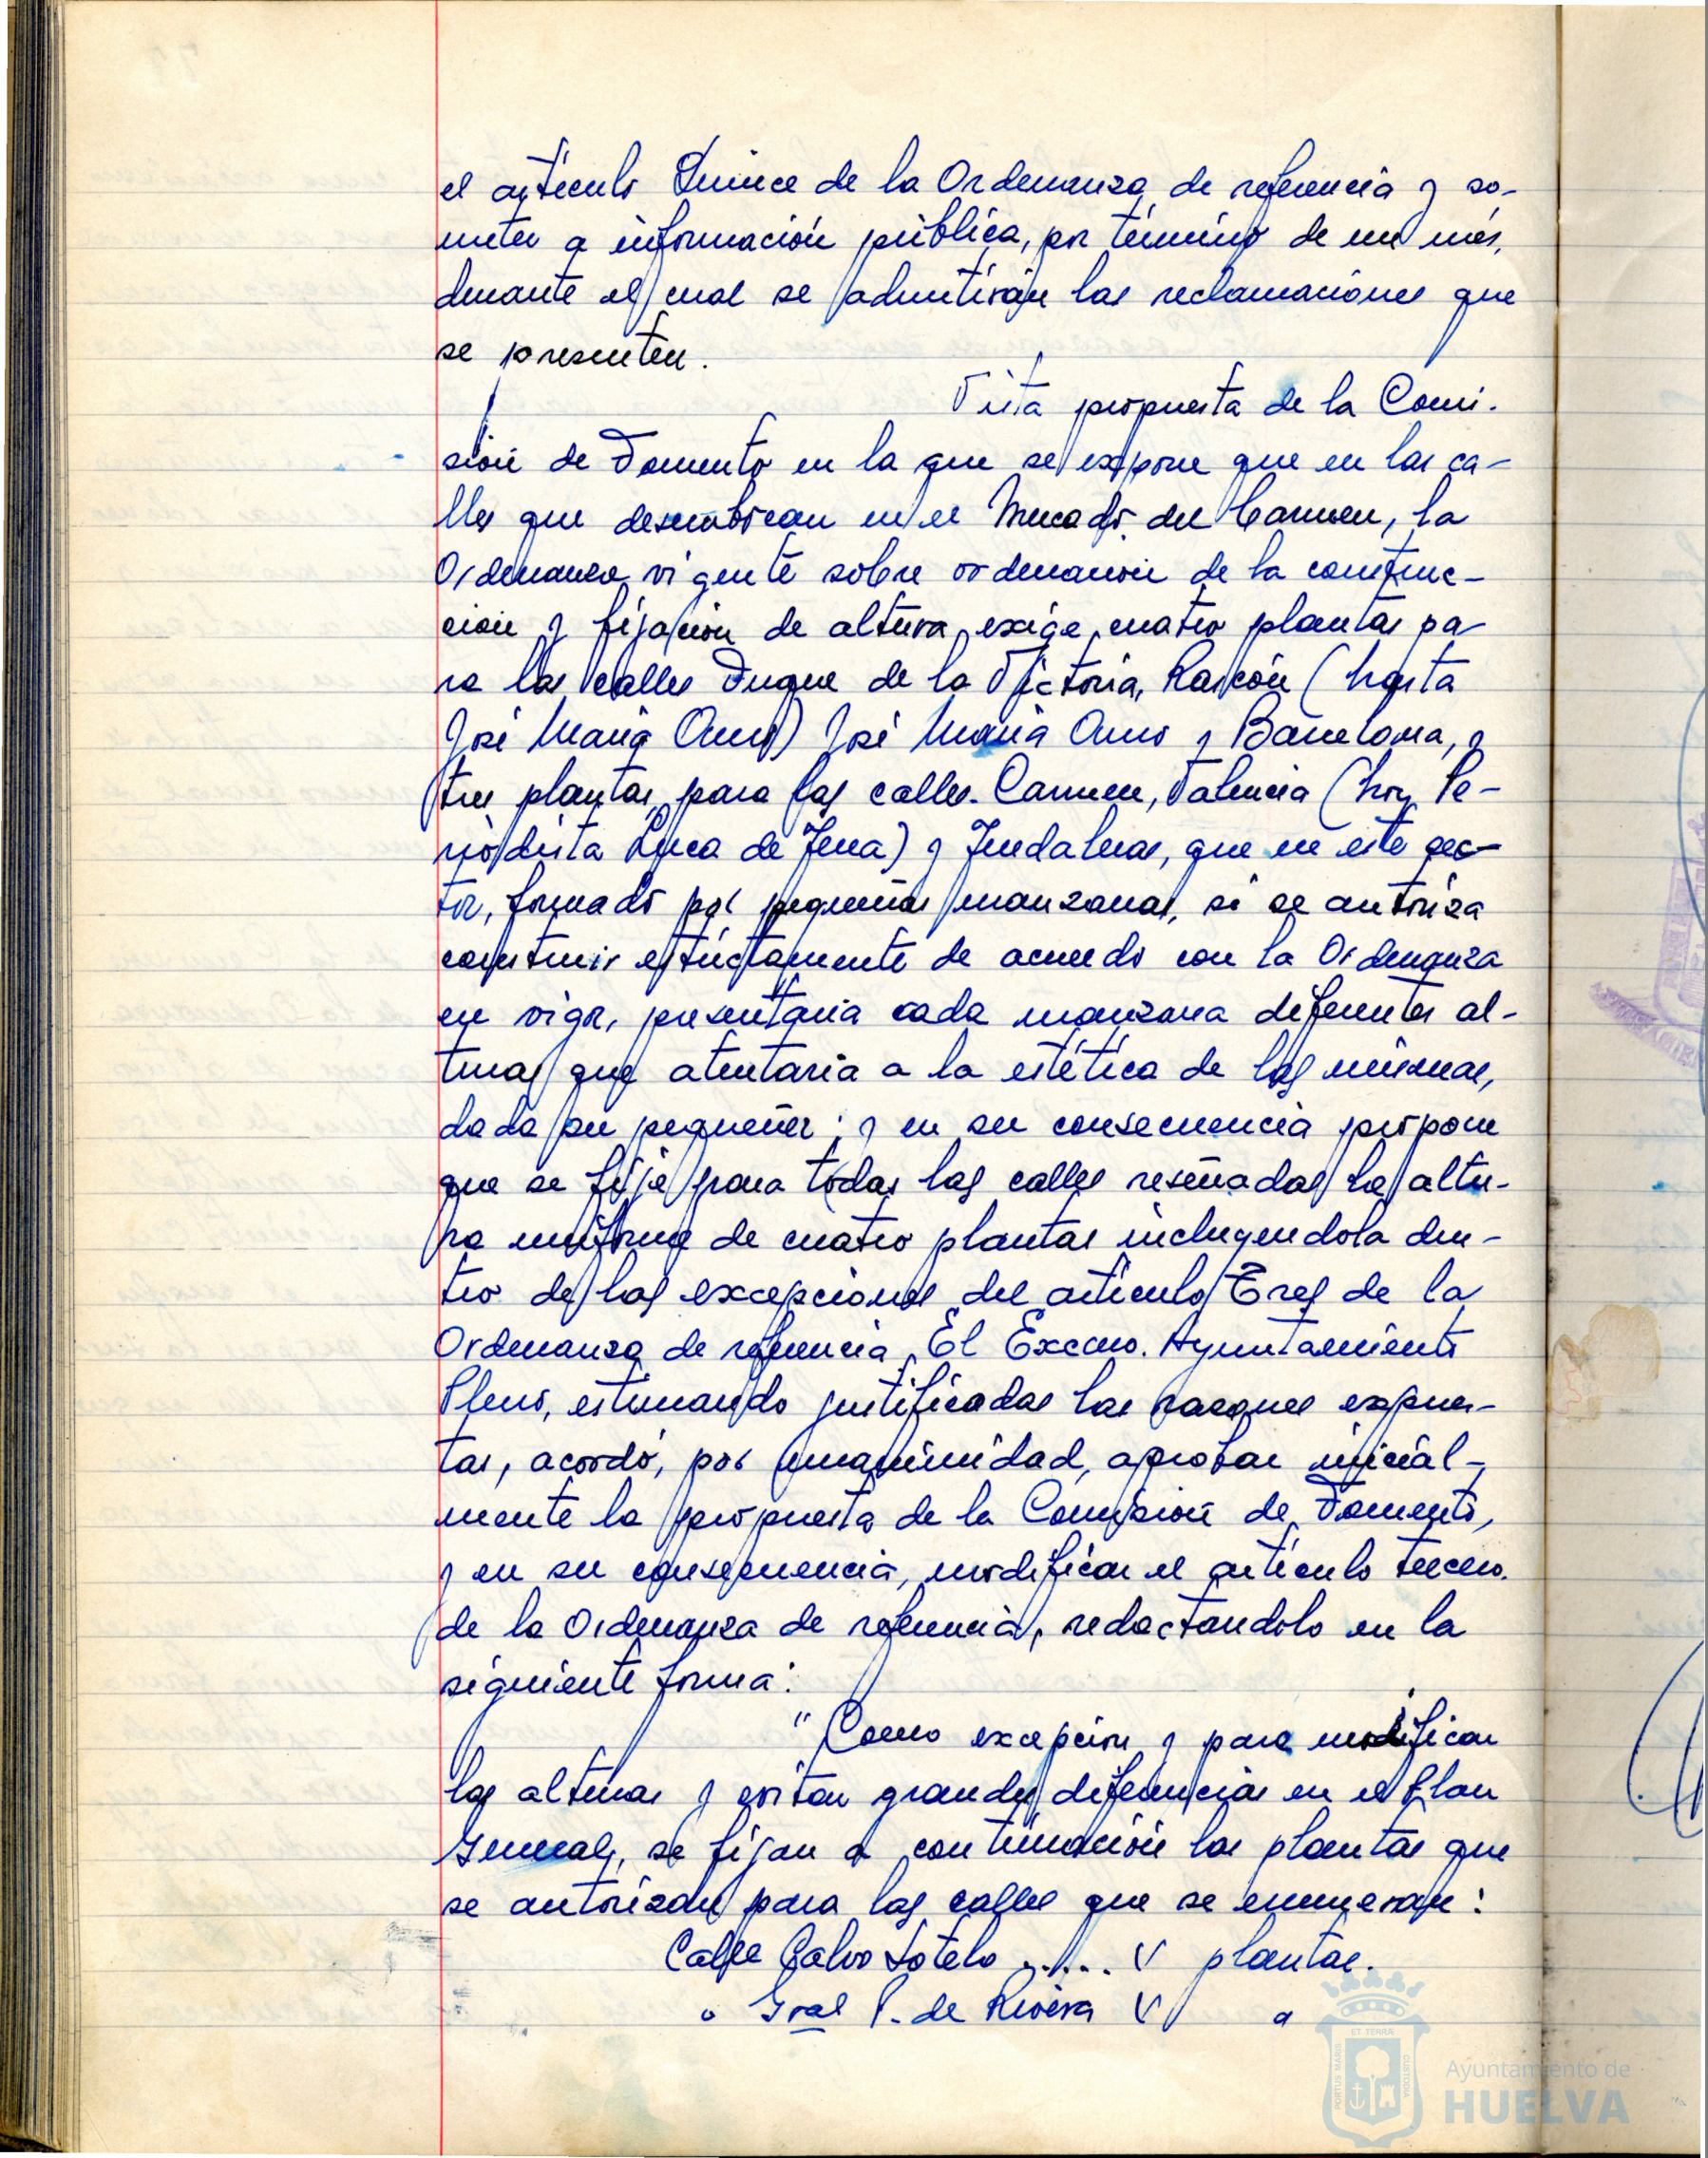 el artículo Quince de la Ordenanza de referencia y so-
meter a información pública, por término de un mes,
durante el cual se admitirán las reclamaciones que
se presenten.
Vista propuesta de la Comi-
sión de Fomento en la que se expone que en las ca-
lles que desembocan en el Mercado del Carmen, la
Ordenanza vigente sobre ordenación de la construc-
ción y fijación de altura, exige, cuatro plantas pa-
ra las calles Duque de la Victoria, Rascón (hasta
José María Amo) José María Amo y Barcelona, y
tres plantas, para las calles Carmen, Valencia (hoy Pe-
riodista Luca de Tena) y Tendaleras, que en este sec-
tor, formado por pequeñas manzanas, si se autoriza
construir estrictamente de acuerdo con la Ordenanza
en vigor, presentaria cada manzana diferentes al-
turas que atentaria a la estética de las mismas,
dada su pequeñez; y en su consecuencia propone
que se fije para todas las calles reseñadas la altu-
ra uniforme de cuatro plantas incluyendola den-
tro de las excepciones del artículo Tres de la
Ordenanza de referencia. El Excmo. Ayuntamiento
Pleno, estimando justificadas las razones expues-
tas, acordó, por unanimidad, aprobar inicial-
mente la propuesta de la Comisión de Fomento,
y en su consecuencia, modificar el artículo tercero
de la Ordenanza de referencia, redactandolo en la
siguiente forma:
"Como excepción y para modificar
las alturas y evitar grandes diferencias en el Plan
General, se fijan a continuación las plantas que
se autorizan para las calles que se enumeran:
Calle Calvo Sotelo ..... V plantas.
" Gral P. de Rivera V "
Ayuntamiento de
HUELVA